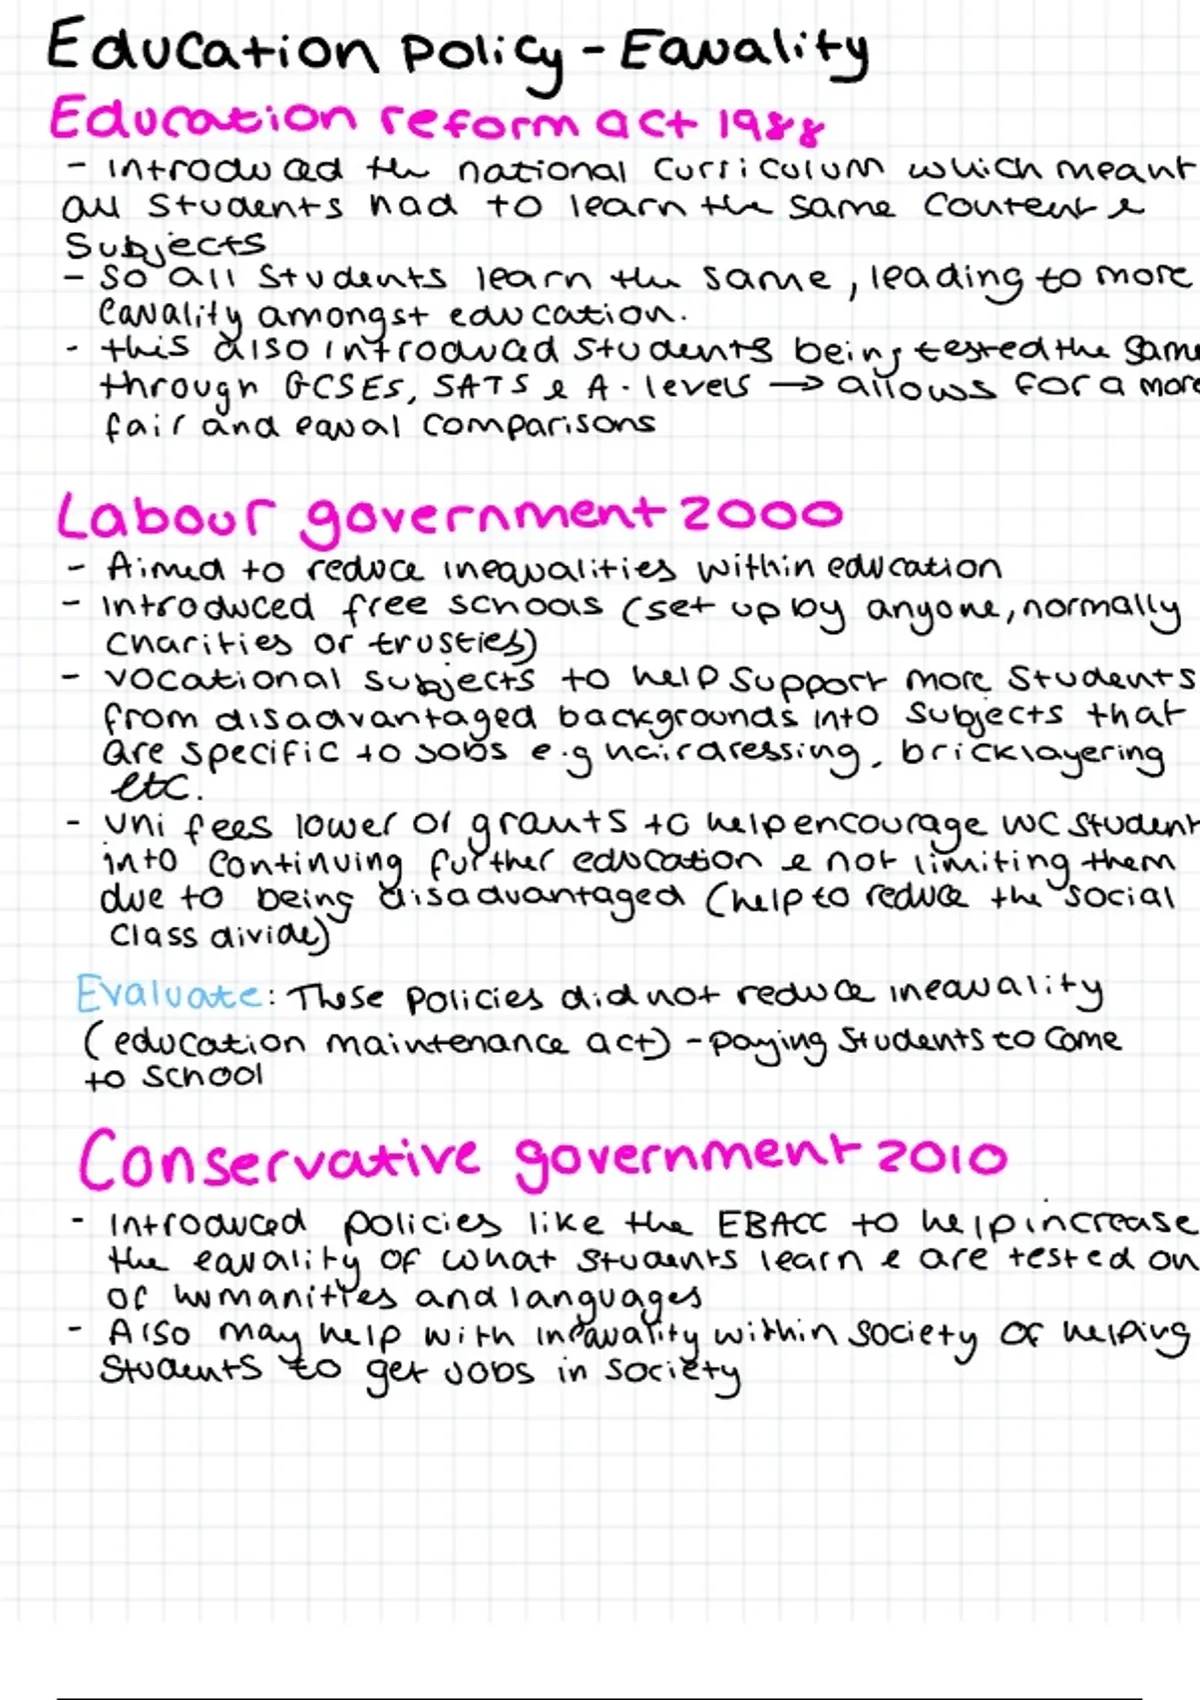 Education policy - Equality
Education reform act 1988
- introduced the national curriculum which meant
all students had to learn the same content &
subjects
- so all students learn the same, leading to more
equality amongst education.
- this also introduced students being tested the same
through GCSEs, SATS & A-levels → allows for a more
fair and equal comparisons
Labour government 2000
- Aimed to reduce inequalities within education
- introduced free schools (set up by anyone, normally
charities or trusties)
- vocational subjects to help support more students
from disadvantaged backgrounds into subjects that
are specific to jobs e.g hairdressing, bricklayering
etc.
- uni fees lower or grants to help encourage WC student
into continuing further education & not limiting them
due to being disadvantaged (help to reduce the social
class divide)
Evaluate: These policies did not reduce inequality
(education maintenance act) - paying students to come
to school
Conservative government 2010
- Introduced policies like the EBACC to help increase
the equality of what students learn & are tested on
of humanities and languages
- Also may help with inequality within society of helping
students to get jobs in society